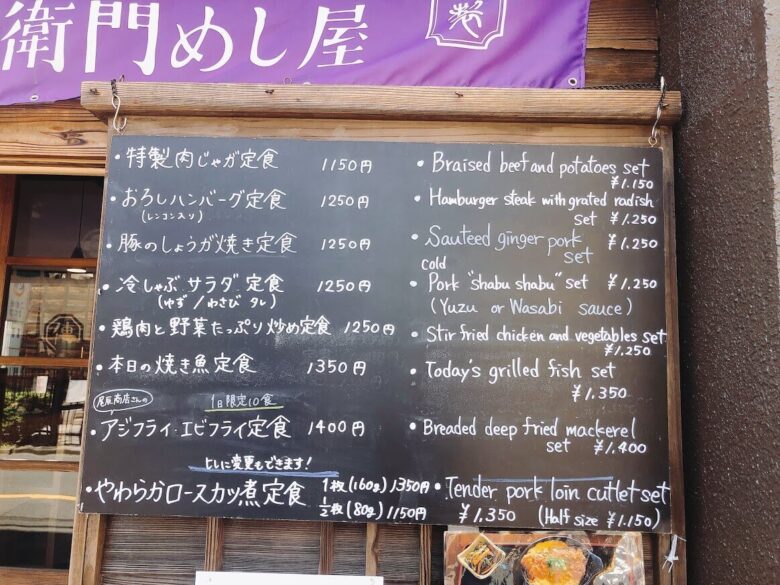 衛門めし屋
・特製肉じゃが定食 1150円
・おろしハンバーグ定食 1250円
(レンコン入り)
・豚のしょうが焼き定食 1250円
・冷しゃぶサラダ定食 1250円
(ゆず/わさびタレ)
・鶏肉と野菜たっぷり炒め定食 1250円
・本日の焼き魚定食 1350円
1日限定10食
・アジフライ・エビフライ定食 1400円
ヒレに変更もできます!
・やわらかロースカツ煮定食 1枚(160g)1350円
1/2枚(80g)1150円
・Braised beef and potatoes set
¥1.150
・Hamburger steak with grated radish
set ¥1.250
・Sauteed ginger pork ¥1.250
set
cold
・Pork "shabu shabu" set ¥1.250
(Yuzu or Wasabi sauce)
・Stir fried chicken and vegetables set
¥1.250
・Today's grilled fish set
¥1.350
・Breaded deep fried mackerel
set ¥1.400
・Tender pork loin cutlet set
¥1.350 (Half size ¥1.150)